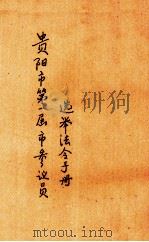 貴阳市第届市参议员
选举法令手册